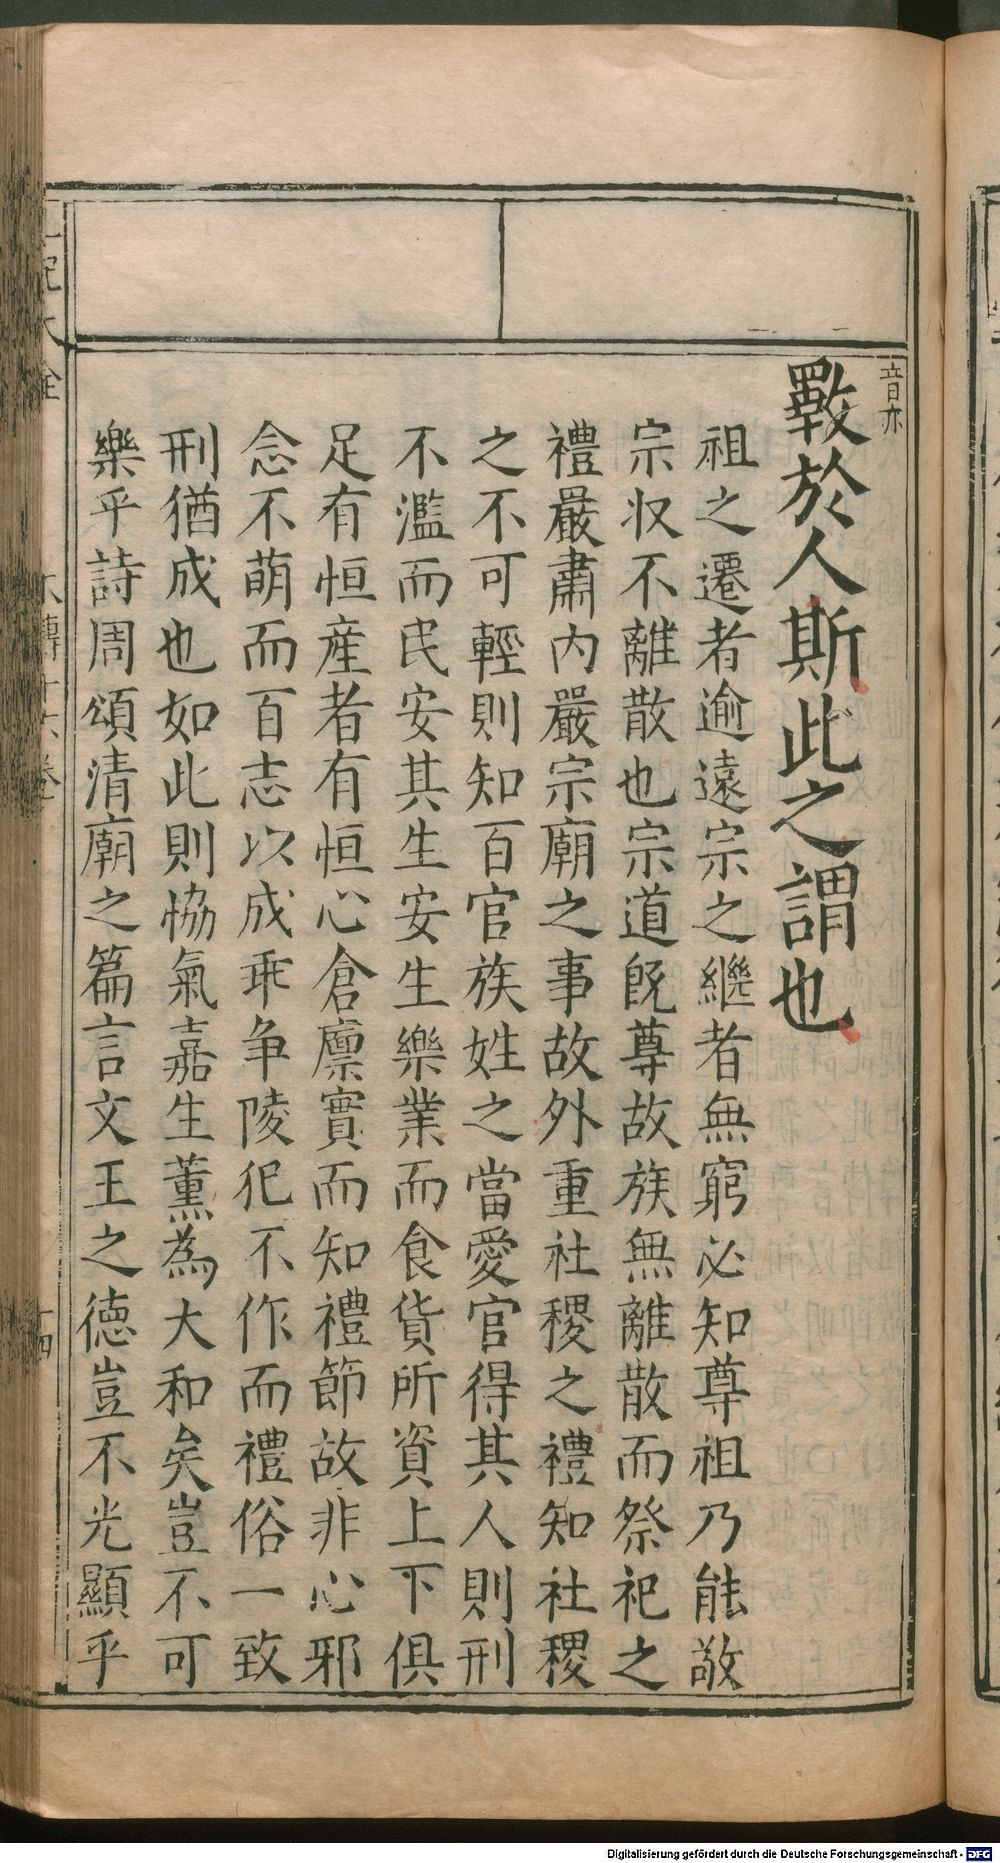 音亦
斁於人斯此之謂也
祖之遷者逾遠宗之繼者無窮必知尊祖乃能敬
宗収不離散也宗道旣尊故族無離散而祭祀之
禮嚴肅内嚴宗廟之事故外重社稷之禮知社稷
之不可輕則知百官族姓之當愛官得其人則刑
不濫而民安其生安生樂業而食貨所資上下俱
足有恒産者有恒心倉廪實而知禮節故非心邪
念不萌而百志以成乖争陵犯不作而禮俗一致
刑猶成也如此則恊氣嘉生薰為大和矣豈不可
樂乎詩周頌清廟之篇言文王之德豈不光顯乎
大全
大傳十六卷
十四
Digitalisierung gefördert durch die Deutsche Forschungsgemeinschaft - DFG